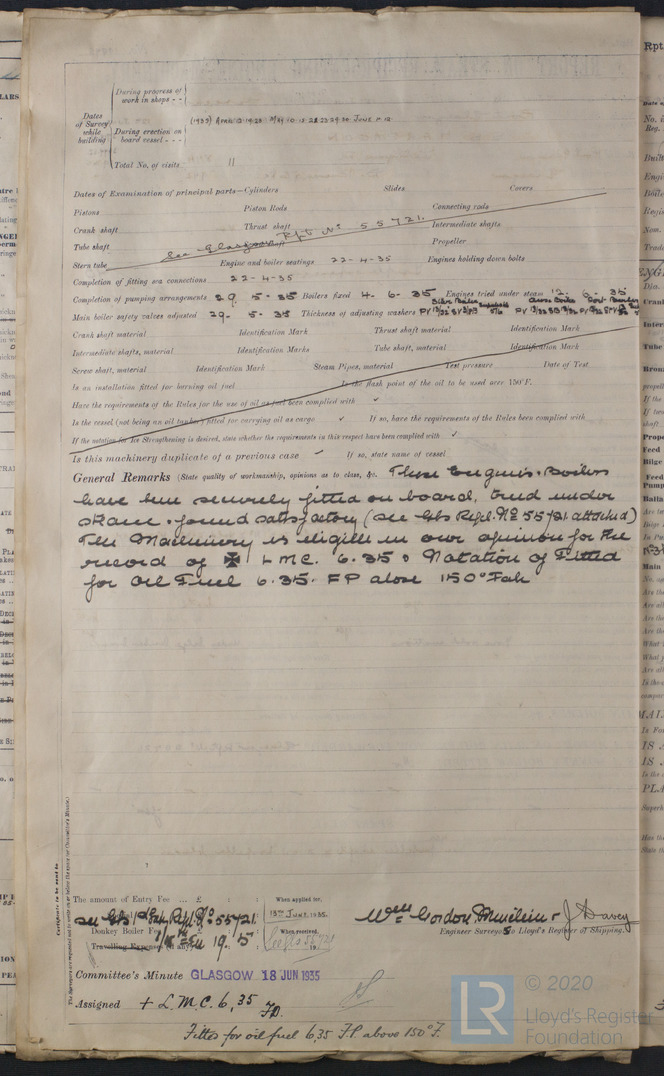 During progress of work in shops - -
Dates of Survey while building
During erection on board vessel - - -
(1935) April 2 19 23 May 10 15 22 23 29 30 June 7 12
Total No. of visits 11
Dates of Examination of principal parts—Cylinders Slides Covers
Pistons Piston Rods Connecting rods
Crank shaft Thrust shaft Intermediate shafts
Tube shaft Propeller
See Glasgow Rpt No 55721.
Stern tube Engine and boiler seatings 22-4-35 Engines holding down bolts
Completion of fitting sea connections 22-4-35
Completion of pumping arrangements 29. 5. 35 Boilers fixed 4. 6. 35 Engines tried under steam 12. 6. 35
Main boiler safety valves adjusted 29. 5. 35 Thickness of adjusting washers
Crank shaft material Identification Mark Thrust shaft material Identification Mark
Intermediate shafts, material Identification Marks Tube shaft, material Identification Mark
Screw shaft, material Identification Mark Steam Pipes, material Test pressure Date of Test
Is an installation fitted for burning oil fuel Is the flash point of the oil to be used over 150°F.
Have the requirements of the Rules for the use of oil as fuel been complied with ✓
Is the vessel (not being an oil tanker) fitted for carrying oil as cargo ✓ If so, have the requirements of the Rules been complied with
If the notation for Ice Strengthening is desired, state whether the requirements in this respect have been complied with ✓
Is this machinery duplicate of a previous case ✓ If so, state name of vessel
General Remarks (State quality of workmanship, opinions as to class, &c. These Engines & Boilers
have been securely fitted on board, tried under
steam & found satisfactory (see Gls Rept. No 55721 attached)
The Machinery is eligible in our opinion for the
record of ✠ LMC. 6.35 & Notation of Fitted
for Oil Fuel 6.35. FP above 150° Fah
Certificate to be sent to
The Surveyors are requested not to write on or below the space for Committee's Minute.
The amount of Entry Fee ... £ : : When applied for,
see Gls 1st Entry Rept. No 55721. 13th June 1935.
Donkey Boiler Fee £ : : When received,
Travelling Expenses (if any) £ 19. 5 See Gls 55721 19
Wm Gordon & J Davey
Engineer Surveyors to Lloyd's Register of Shipping.
Committee's Minute GLASGOW 18 JUN 1935
Assigned + L.M.C. 6,35
F.D.
Fitted for oil fuel 6,35 F.P. above 150° F.
© 2020
LR Lloyd's Register
Foundation